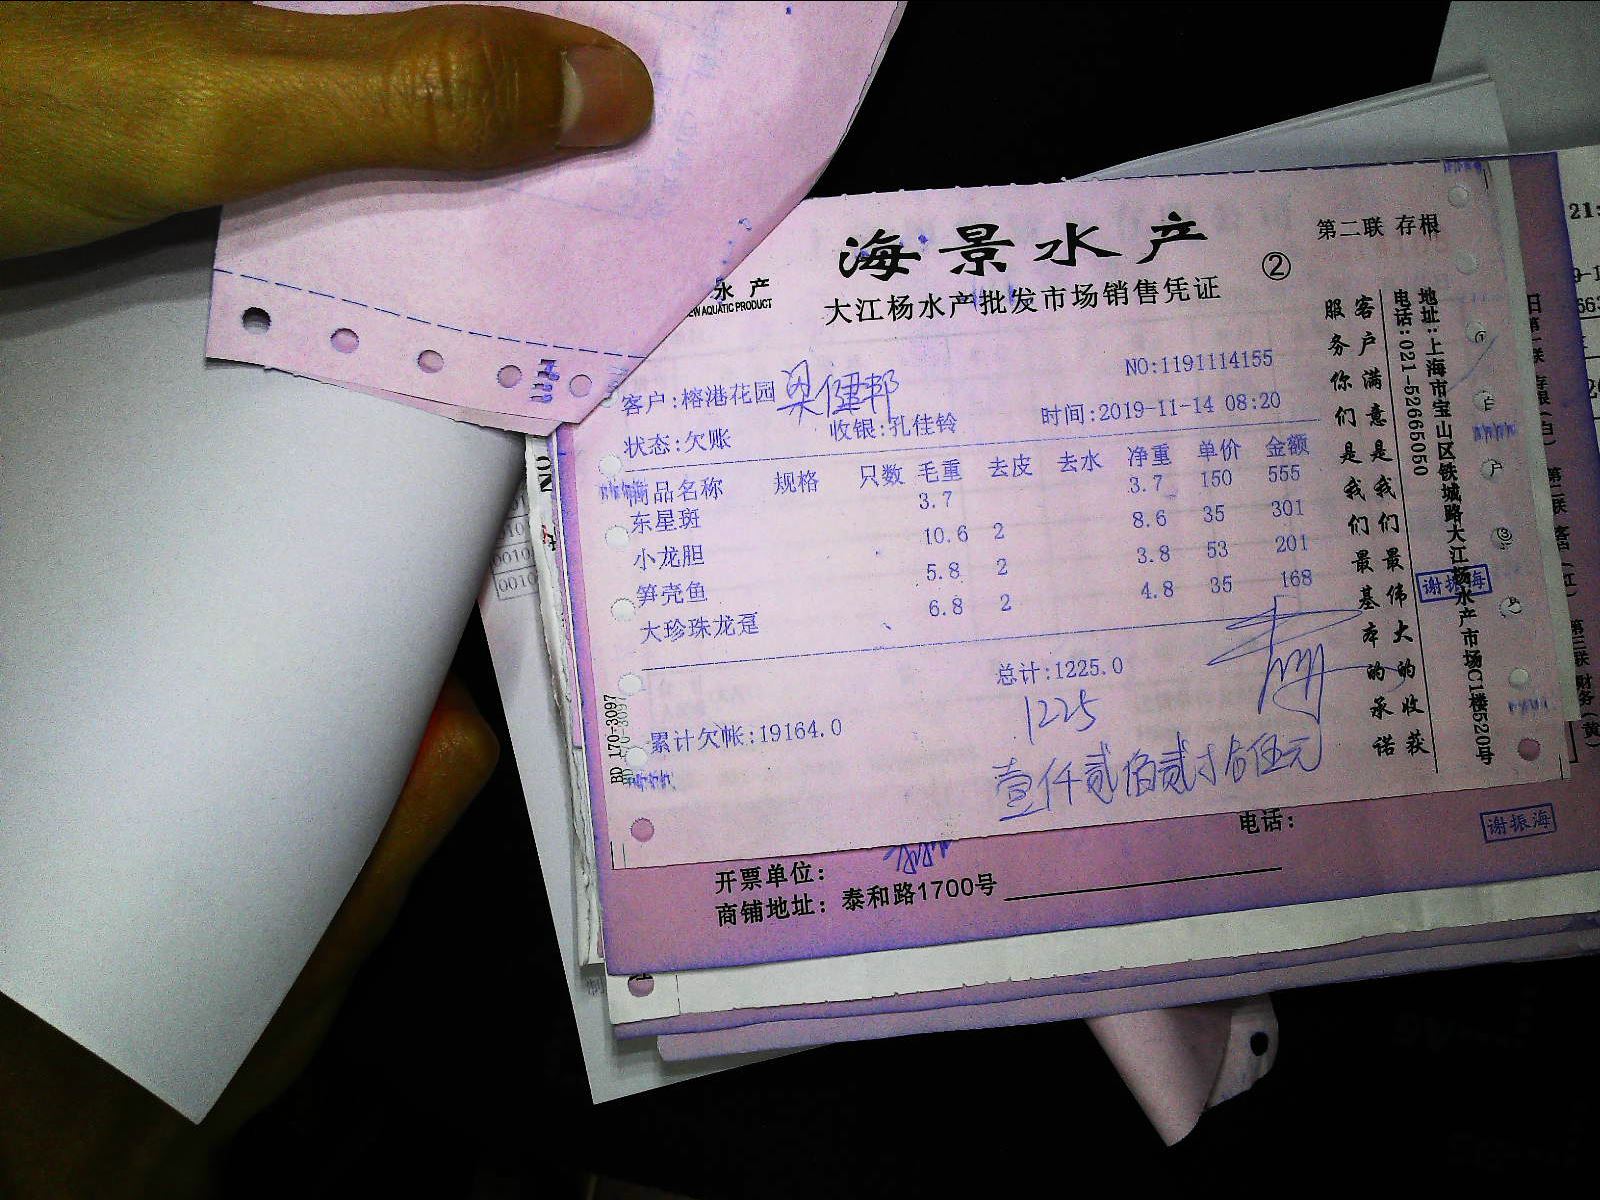 海景水产
第二联 存根
②
大江杨水产批发市场销售凭证
水产
EW AQUATIC PRODUCT
NO:1191114155
客户:榕港花园 梁健邦
时间:2019-11-14 08:20
状态:欠账 收银:孔佳铃
商品名称 规格 只数 毛重 去皮 去水 净重 单价 金额
东星斑 3.7 3.7 150 555
小龙胆 10.6 2 8.6 35 301
笋壳鱼 5.8 2 3.8 53 201
大珍珠龙趸 6.8 2 4.8 35 168
总计:1225.0
1225
累计欠帐:19164.0
壹仟贰佰贰拾伍元
客户满意是我们最伟大的收获
服务你们是我们最基本的承诺
地址:上海市宝山区铁城路大江杨水产市场C1楼520号
电话:021-52665050
谢振海
BD 170-3097
电话:
谢振海
开票单位:
商铺地址:泰和路1700号